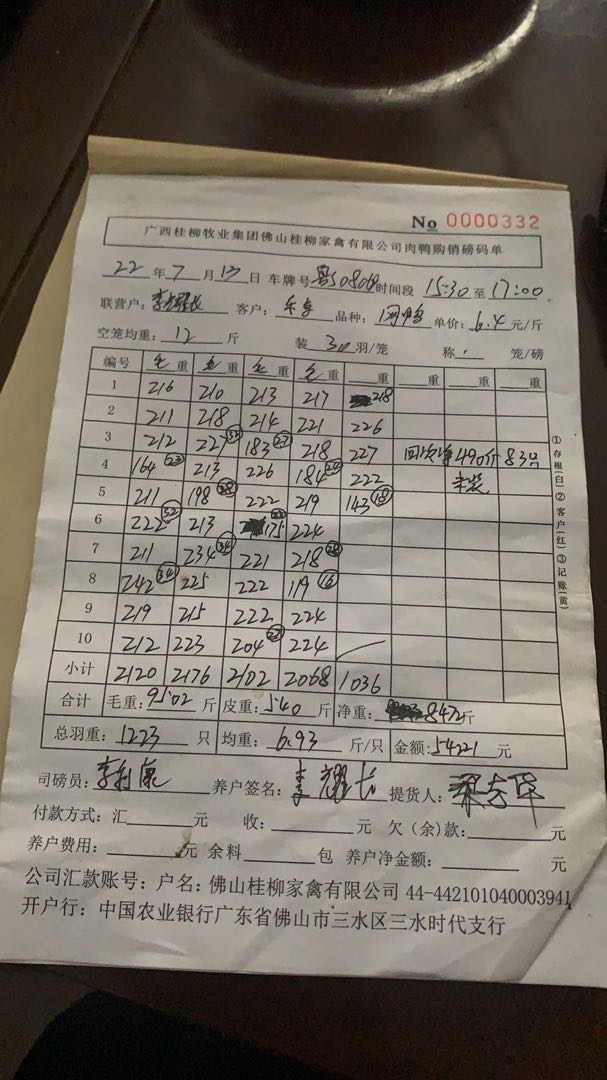 No 0000332
广西桂柳牧业集团佛山桂柳家禽有限公司肉鸭购销磅码单
22 年 7 月 17 日 车牌号 时间段 15:30 至 17:00
联营户: 李耀长 客户: 品种: 单价: 6.4 元/斤
空笼均重: 12 斤 装 30 羽/笼 称 笼/磅
编号 毛重 毛重 毛重 毛重 重 重 重 重
1 216 210 213 217 218
2 211 218 214 221 226
3 212 227 183 27 218 227 回 净490斤 83只
4 164 23 213 226 184 222
5 211 198 28 222 219 143 18
6 222 32 213 175 224
7 211 234 34 221 218
8 242 34 225 222 119 16
9 219 215 222 224
10 212 223 204 224
小计 2120 2176 2102 2068 1036
合计 毛重: 9502 斤 皮重: 540 斤 净重: 8472 斤
总羽重: 1223 只 均重: 6.93 斤/只 金额: 54221 元
司磅员: 李利康 养户签名: 李耀长 提货人:
付款方式: 汇 元 收: 元 欠(余)款: 元
养户费用: 元 余料 包 养户净金额: 元
公司汇款账号: 户名: 佛山桂柳家禽有限公司 44-442101040003941
开户行: 中国农业银行广东省佛山市三水区三水时代支行
①存根(白)②客户(红)③记账(黄)